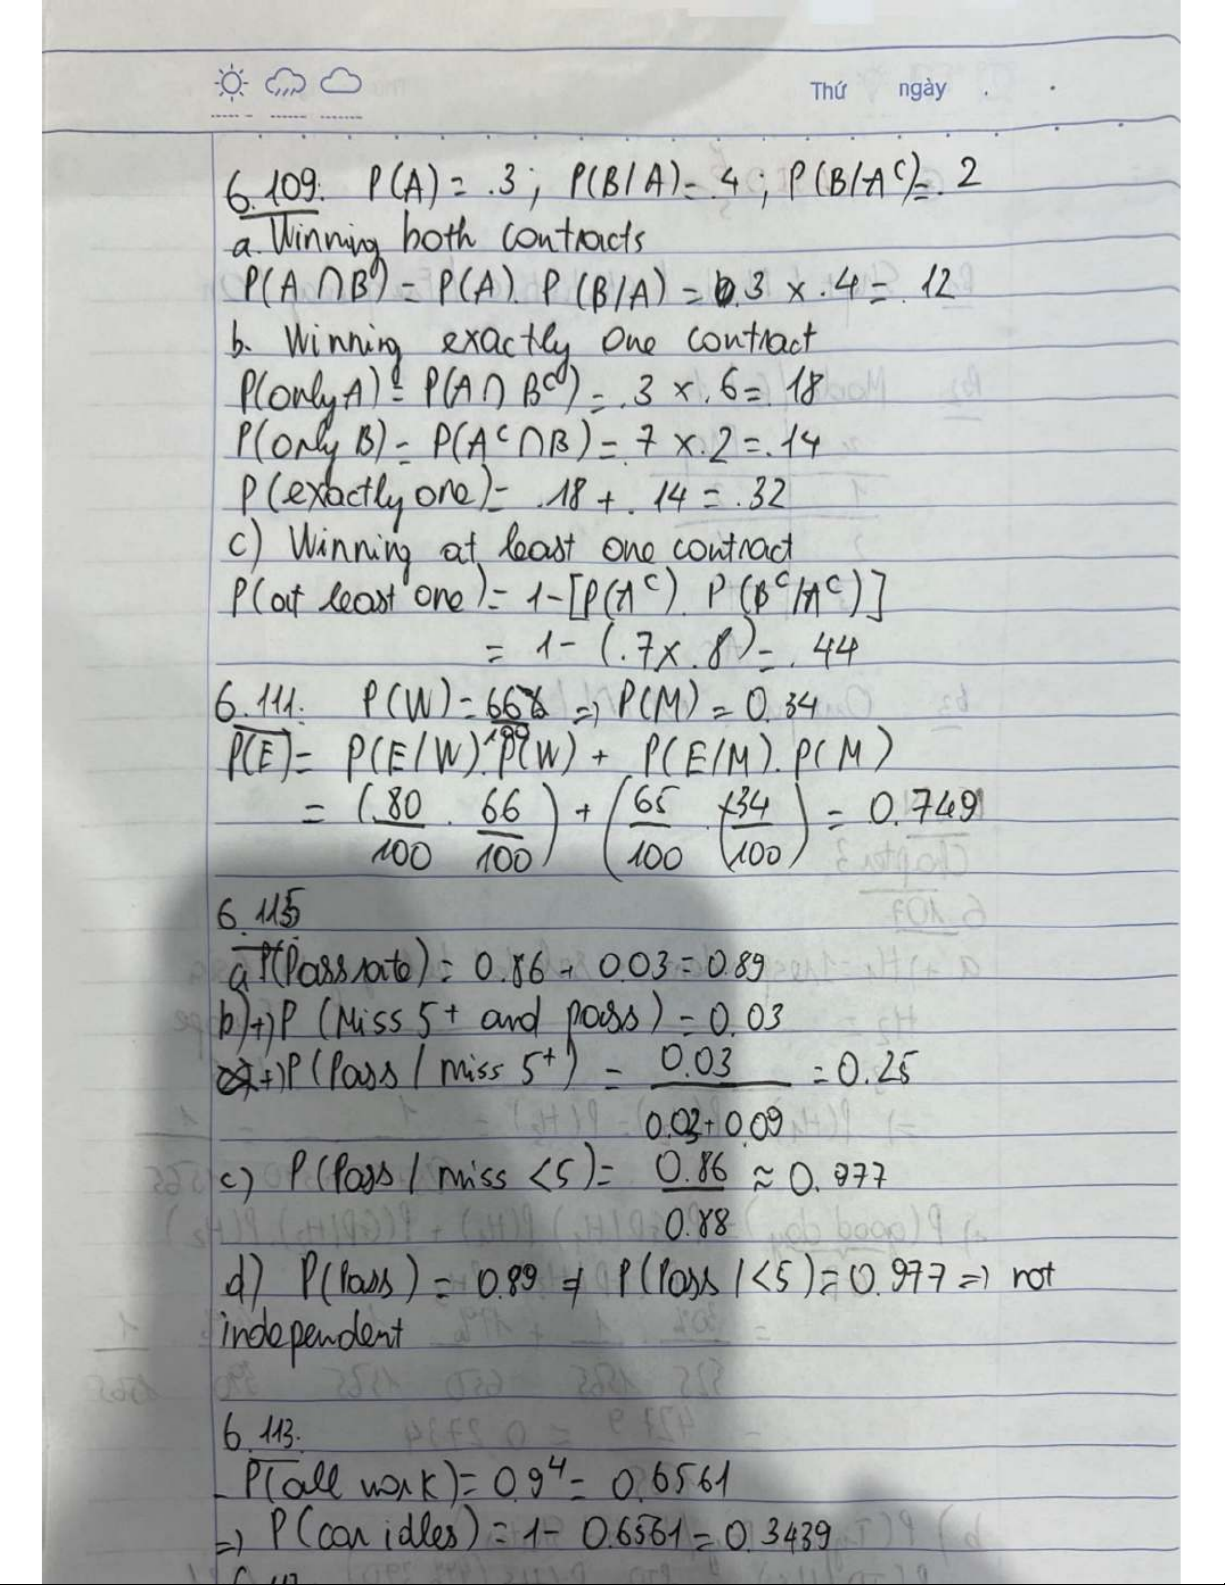 Thứ ngày
6.109: P(A) = .3 ; P(B/A) = .4 ; P(B/A^c) = .2
a. Winning both contracts
P(A ∩ B) = P(A). P(B/A) = 0.3 x .4 = .12
b. Winning exactly one contract
P(only A) = P(A ∩ B^c) = .3 x .6 = .18
P(only B) = P(A^c ∩ B) = .7 x .2 = .14
P(exactly one) = .18 + .14 = .32
c) Winning at least one contract
P(at least one) = 1-[P(A^c). P(B^c/A^c)]
= 1 - (.7 x .8) = .44
6.111: P(W) = 66% => P(M) = 0.34
P(E) = P(E/W). P(W) + P(E/M). P(M)
= (80/100 . 66/100) + (65/100 . 34/100) = 0.749
6.115
a P(Pass rate) = 0.86 + 0.03 = 0.89
b) +) P (Miss 5+ and pass) = 0.03
+) P (Pass / miss 5+) = 0.03 / 0.03 + 0.09 = 0.25
c) P(Pass / miss <5) = 0.86 / 0.88 ≈ 0.977
d) P(Pass) = 0.89 ≠ P(Pass / <5) = 0.977 => not
independent
6.113.
- P(all work) = 0.9^4 = 0.6561
=> P(car idles) = 1 - 0.6561 = 0.3439